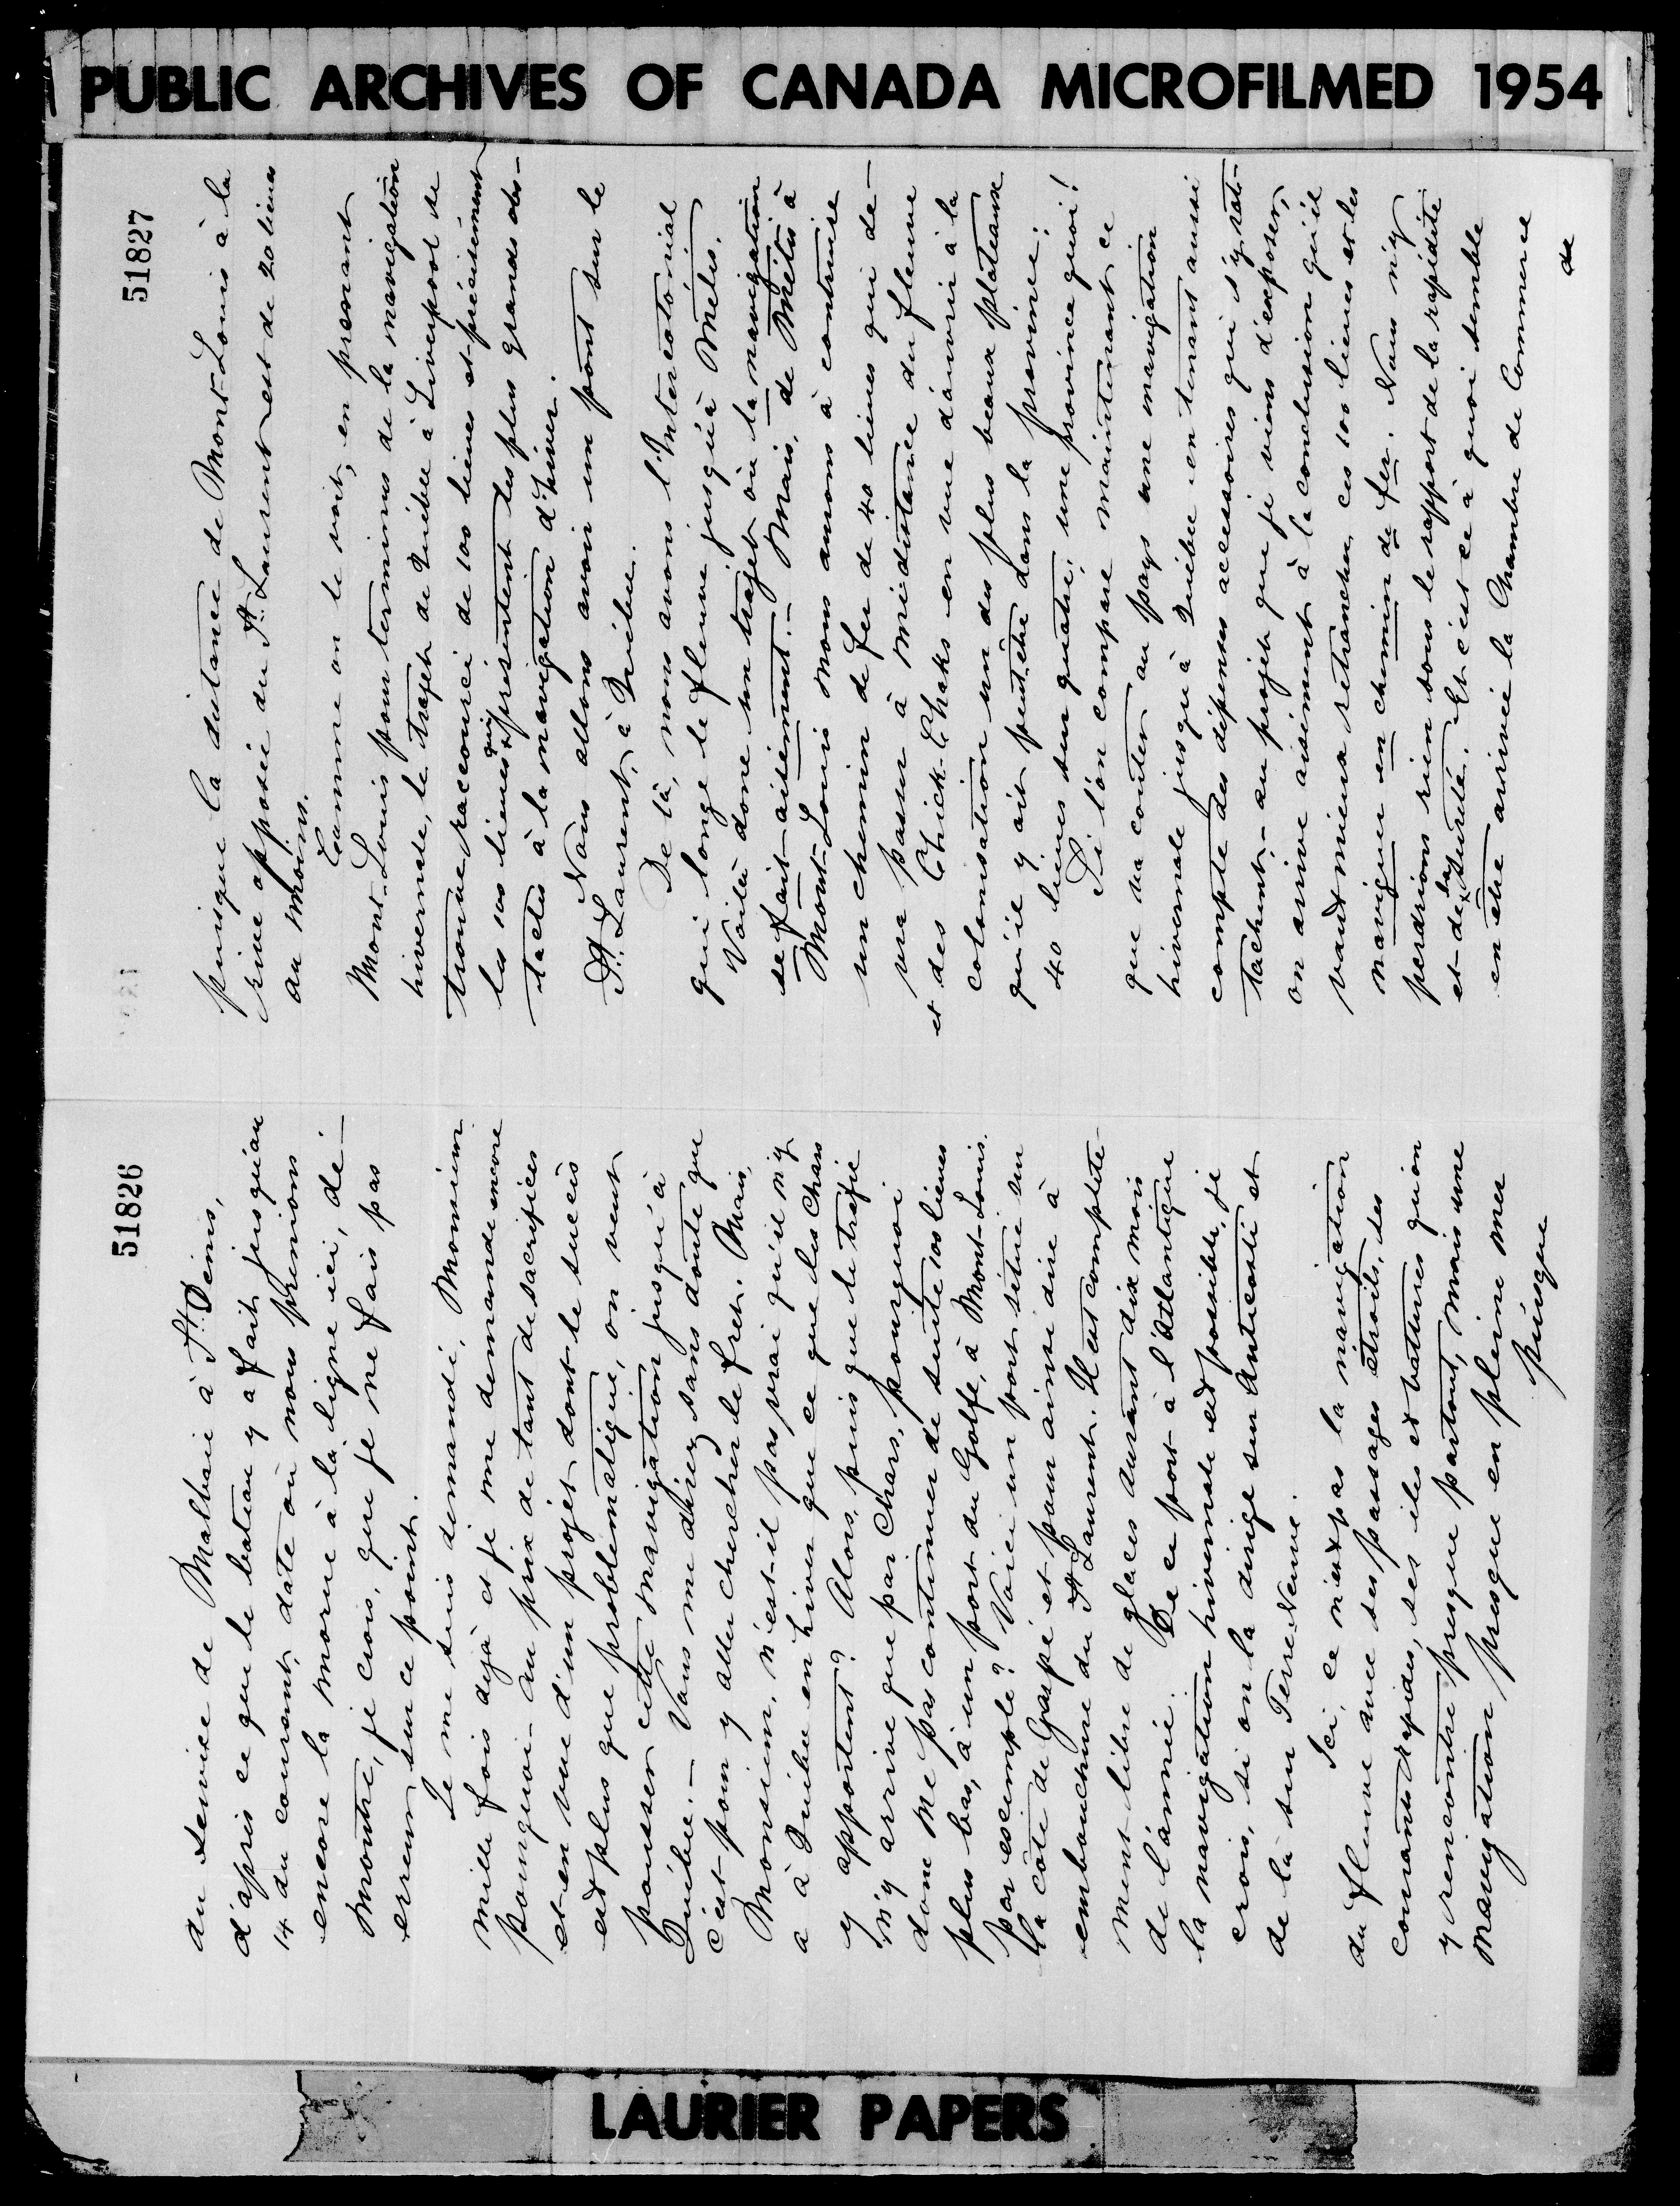 PUBLIC ARCHIVES OF CANADA MICROFILMED 1954
51826
au service de Malbaie à St. Denis,
d'après ce que le bateau y a fait jusqu'au
14 du courant, date où nous prenions
encore la morue à la ligne ici, dé-
montre, je crois, que je ne fais pas
erreur sur ce point.
Je me suis demandé, Monsieur
mille fois déjà et je me demande encore
pourquoi - au prix de tant de sacrifices
et en vue d'un projet dont le succès
est plus que problématique, on veut
pousser cette navigation jusqu'à
Québec. - Vous me direz sans doute que
c'est pour y aller chercher le fret. Mais,
Monsieur, n'est-il pas vrai qu'il n'y
a à Québec en hiver que ce que les chars
y apportent? Alors, puis que le trafic
n'y arrive que par chars, pourquoi
donc ne pas continuer de suite 100 lieues
plus bas, à un port du Golfe, à Mont-Louis.
par exemple? Voici un port situé sur
la côte de Gaspé et pour ainsi dire à
embouchure du St Laurent. Il est complète-
ment libre de glaces durant dix mois
de l'année. De ce port à l'Atlantique
la navigation hivernale est possible, je
crois, si on la dirige sur Anticosti et
de là sur Terre Neuve.
Ici, ce n'est pas la navigation
du fleuve avec ses passages étroits, ses
courants rapides, ses iles et battures qu'on
y rencontre presque partout, mais une
navigation presque en pleine mer
puisque
51827
puisque la distance de Mont-Louis à la
rive opposée du St. Laurent est de 20 lieues
au moins.
Comme on le voit, en prenant
Mont-Louis pour terminus de la navigation
hivernale, le trajet de Québec à Liverpool se
trouve raccourci de 100 lieues et précisément
les 100 lieues qui présentent les plus grands obs-
tacles à la navigation d'hiver.
Nous allons avoir un pont sur le
St. Laurent, à Québec.
De là, nous avons l'Intercolonial
qui longe le fleuve jusqu'à Métis.
Voilà donc un trajet où la navigation
se fait aisément. - Mais, de Métis à
Mont-Louis nous aurons à construire
un chemin de fer de 40 lieues qui de-
vra passer à mi-distance du fleuve
et des Chick-Chaks en vue d'ouvrir à la
colonisation un des plus beaux plateaux
qu'il y ait peut-être dans la province;
40 lieues sur quatre; une province quoi!
Si l'on compare maintenant ce
que va coûter au pays une navigation
hivernale jusqu'à Québec en tenant aussi
compte des dépenses accessoires qui s'y rat-
tachent, - au projet que je viens d'exposer,
on arrive aisément à la conclusion qu'il
vaut mieux retrancher ces 100 lieues et les
naviguer en chemin de fer. Nous n'y
perdrions rien sous le rapport de la rapidité
et de la sureté. Et c'est ce à quoi semble
en être arrivée la Chambre de Commerce
de
LAURIER PAPERS